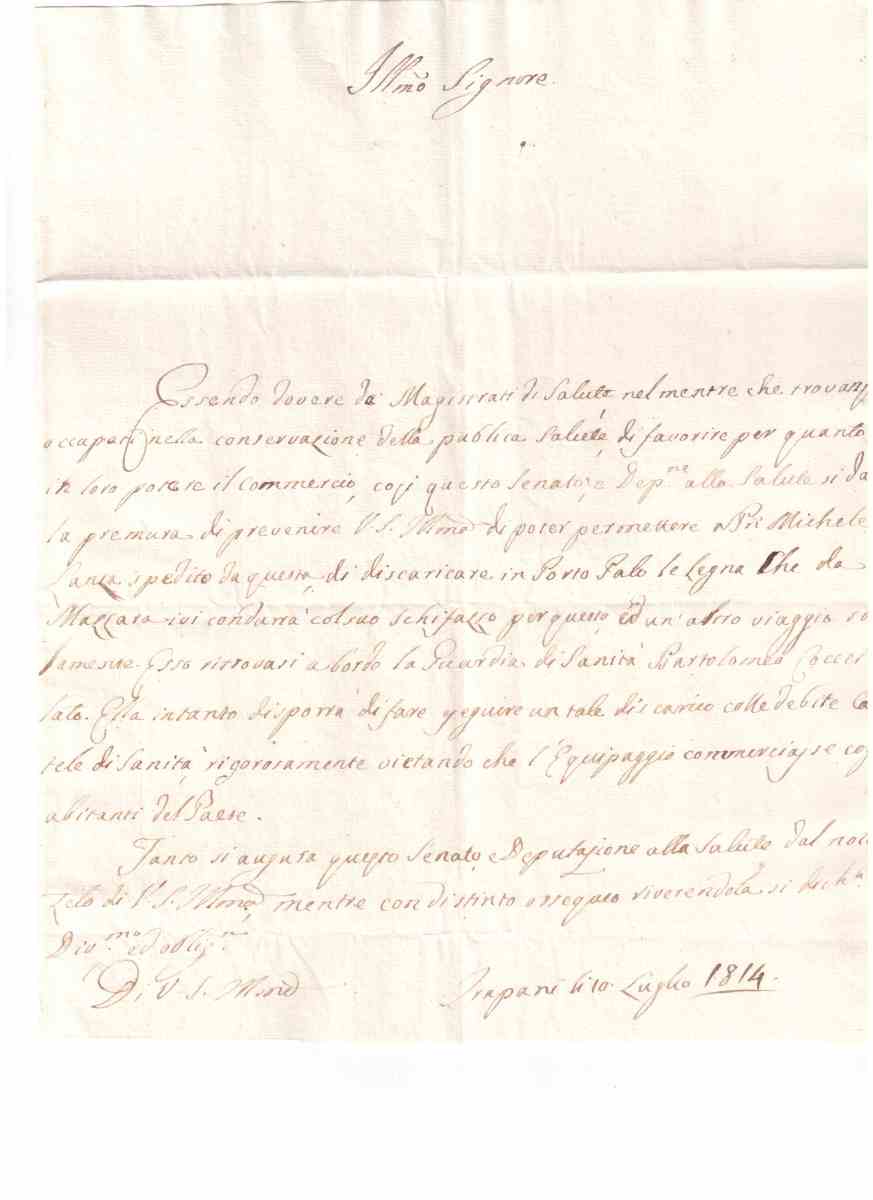 Illmo Signore
Essendo dovere de' Magistrati di Salute nel mentre che trovansi
occupati nella conservazione della publica Salute, di favorire per quanto
in loro potere il commercio, così questo Senato, e Depne alla Salute si dà
la premura di prevenire V. S. Illma di poter permettere a Pn Michele
Lanza spedito da questa, di discaricare in Porto Palo le Legna che da
Mazzara ivi condurrà col suo schifazzo per questo, ed un' altro viaggio so
lamente. Esso ritrovasi a bordo la Guardia di Sanità Bartolomeo Coccel
lato. Ella intanto disporrà di fare seguire un tale discarico colle debite Ca
tele di Sanità, rigorosamente vietando che l'Equipaggio commerciasse cogl
abitanti del Paese.
Tanto si augura questo Senato, e Deputazione alla Salute dal noto
Zelo di V. S. Illma, mentre con distinto ossequio riverendola si dich.a
Div.mo ed obblig.
Di V. S. Illma
Trapani li 10. Luglio 1814.